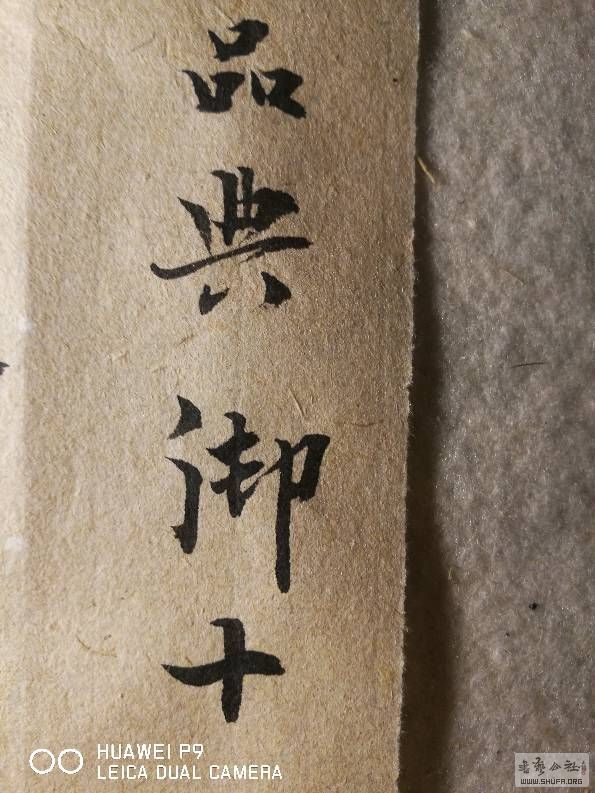 品典御十
HUAWEI P9
LEICA DUAL CAMERA
WWW.SHUFA.ORG